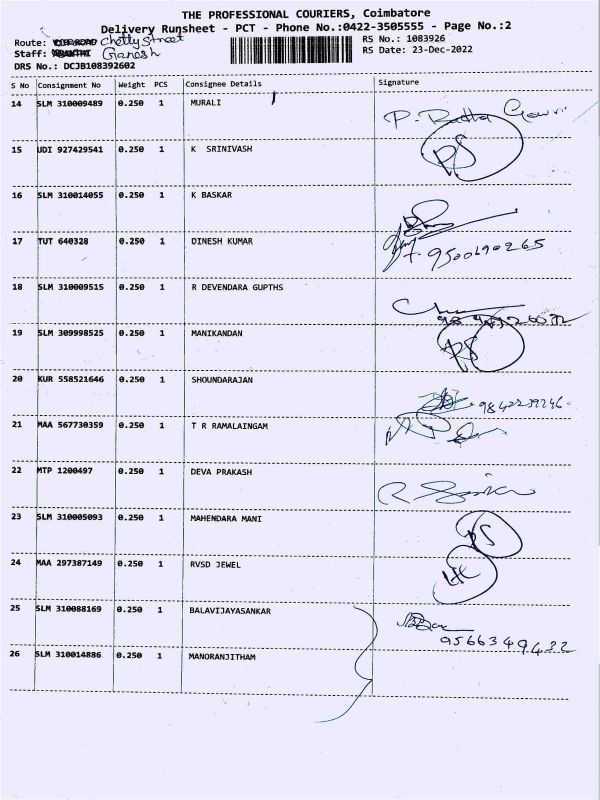 THE PROFESSIONAL COURIERS, Coimbatore
Delivery Runsheet - PCT - Phone No.:0422-3505555 - Page No.:2
Route: Chetty Street
RS No.: 1083926
Staff: Ganesh
RS Date: 23-Dec-2022
DRS No.: DCJB108392602
S No Consignment No Weight PCS Consignee Details Signature
14 SLM 310009489 0.250 1 MURALI
15 UDI 927429541 0.250 1 K SRINIVASH
16 SLM 310014055 0.250 1 K BASKAR
17 TUT 640328 0.250 1 DINESH KUMAR
9500690265
18 SLM 310009515 0.250 1 R DEVENDARA GUPTHS
19 SLM 309998525 0.250 1 MANIKANDAN
20 KUR 558521646 0.250 1 SHOUNDARAJAN
9842239246
21 MAA 567730359 0.250 1 T R RAMALAINGAM
22 MTP 1200497 0.250 1 DEVA PRAKASH
23 SLM 310005093 0.250 1 MAHENDARA MANI
24 MAA 297387149 0.250 1 RVSD JEWEL
25 SLM 310088169 0.250 1 BALAVIJAYASANKAR
9566349432
26 SLM 310014886 0.250 1 MANORANJITHAM